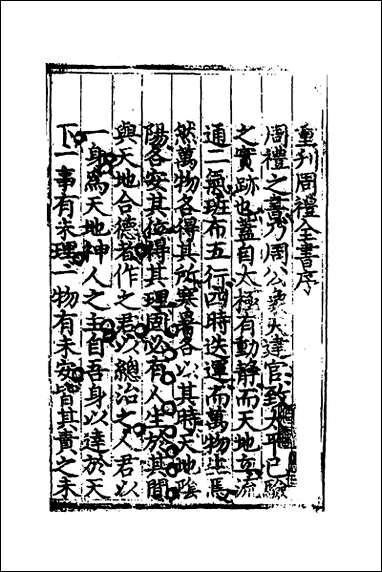 重刊周禮全書序
周禮之書乃周公象天建官致太平已驗
之實跡也蓋自太極有動靜而天地立流
通二氣班布五行四時迭運而萬物生焉
然萬物各得其所寒暑各以其時天地陰
陽各安其位得其理固必有人生於其間
與天地合德者作之君以總治之人君以
一身為天地神人之主自吾身以達於天
下一事有未理一物有未安皆其責之未